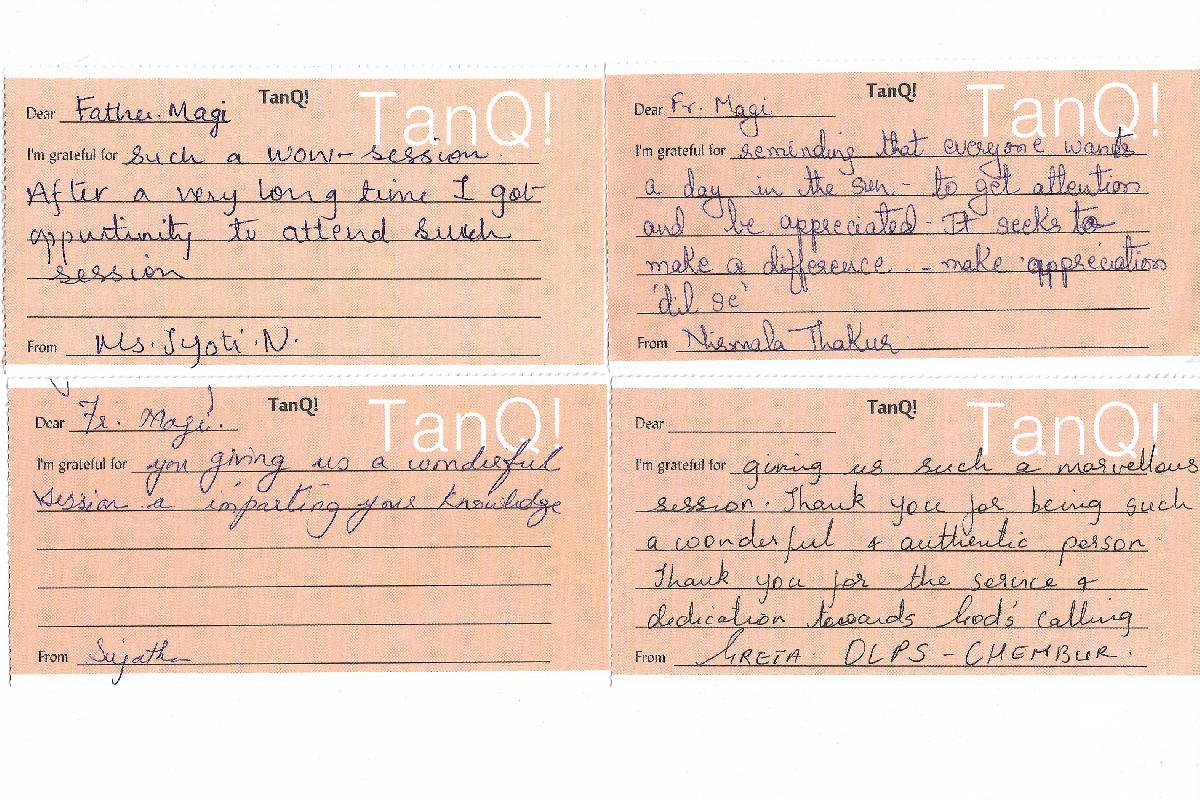 TanQ!
TanQ!
Dear Father. Magi
I'm grateful for such a wow- session.
After a very long time I got
oppurtinity to attend such
session
From Ms. Jyoti. N.
TanQ!
TanQ!
Dear Fr. Magi
I'm grateful for reminding that everyone wants
a day in the sun - to get attention
and be appreciated - It seeks to
make a difference - make appreciation
'dil se'
From Nirmala Thakur
TanQ!
TanQ!
Dear Fr. Magi.
I'm grateful for you giving us a wonderful
session a imparting your knowledge
From Sujatha
TanQ!
TanQ!
Dear
I'm grateful for giving us such a marvellous
session. Thank you for being such
a wonderful & authentic person
Thank you for the service &
dedication towards God's calling
From GRETA. OLPS - CHEMBUR.